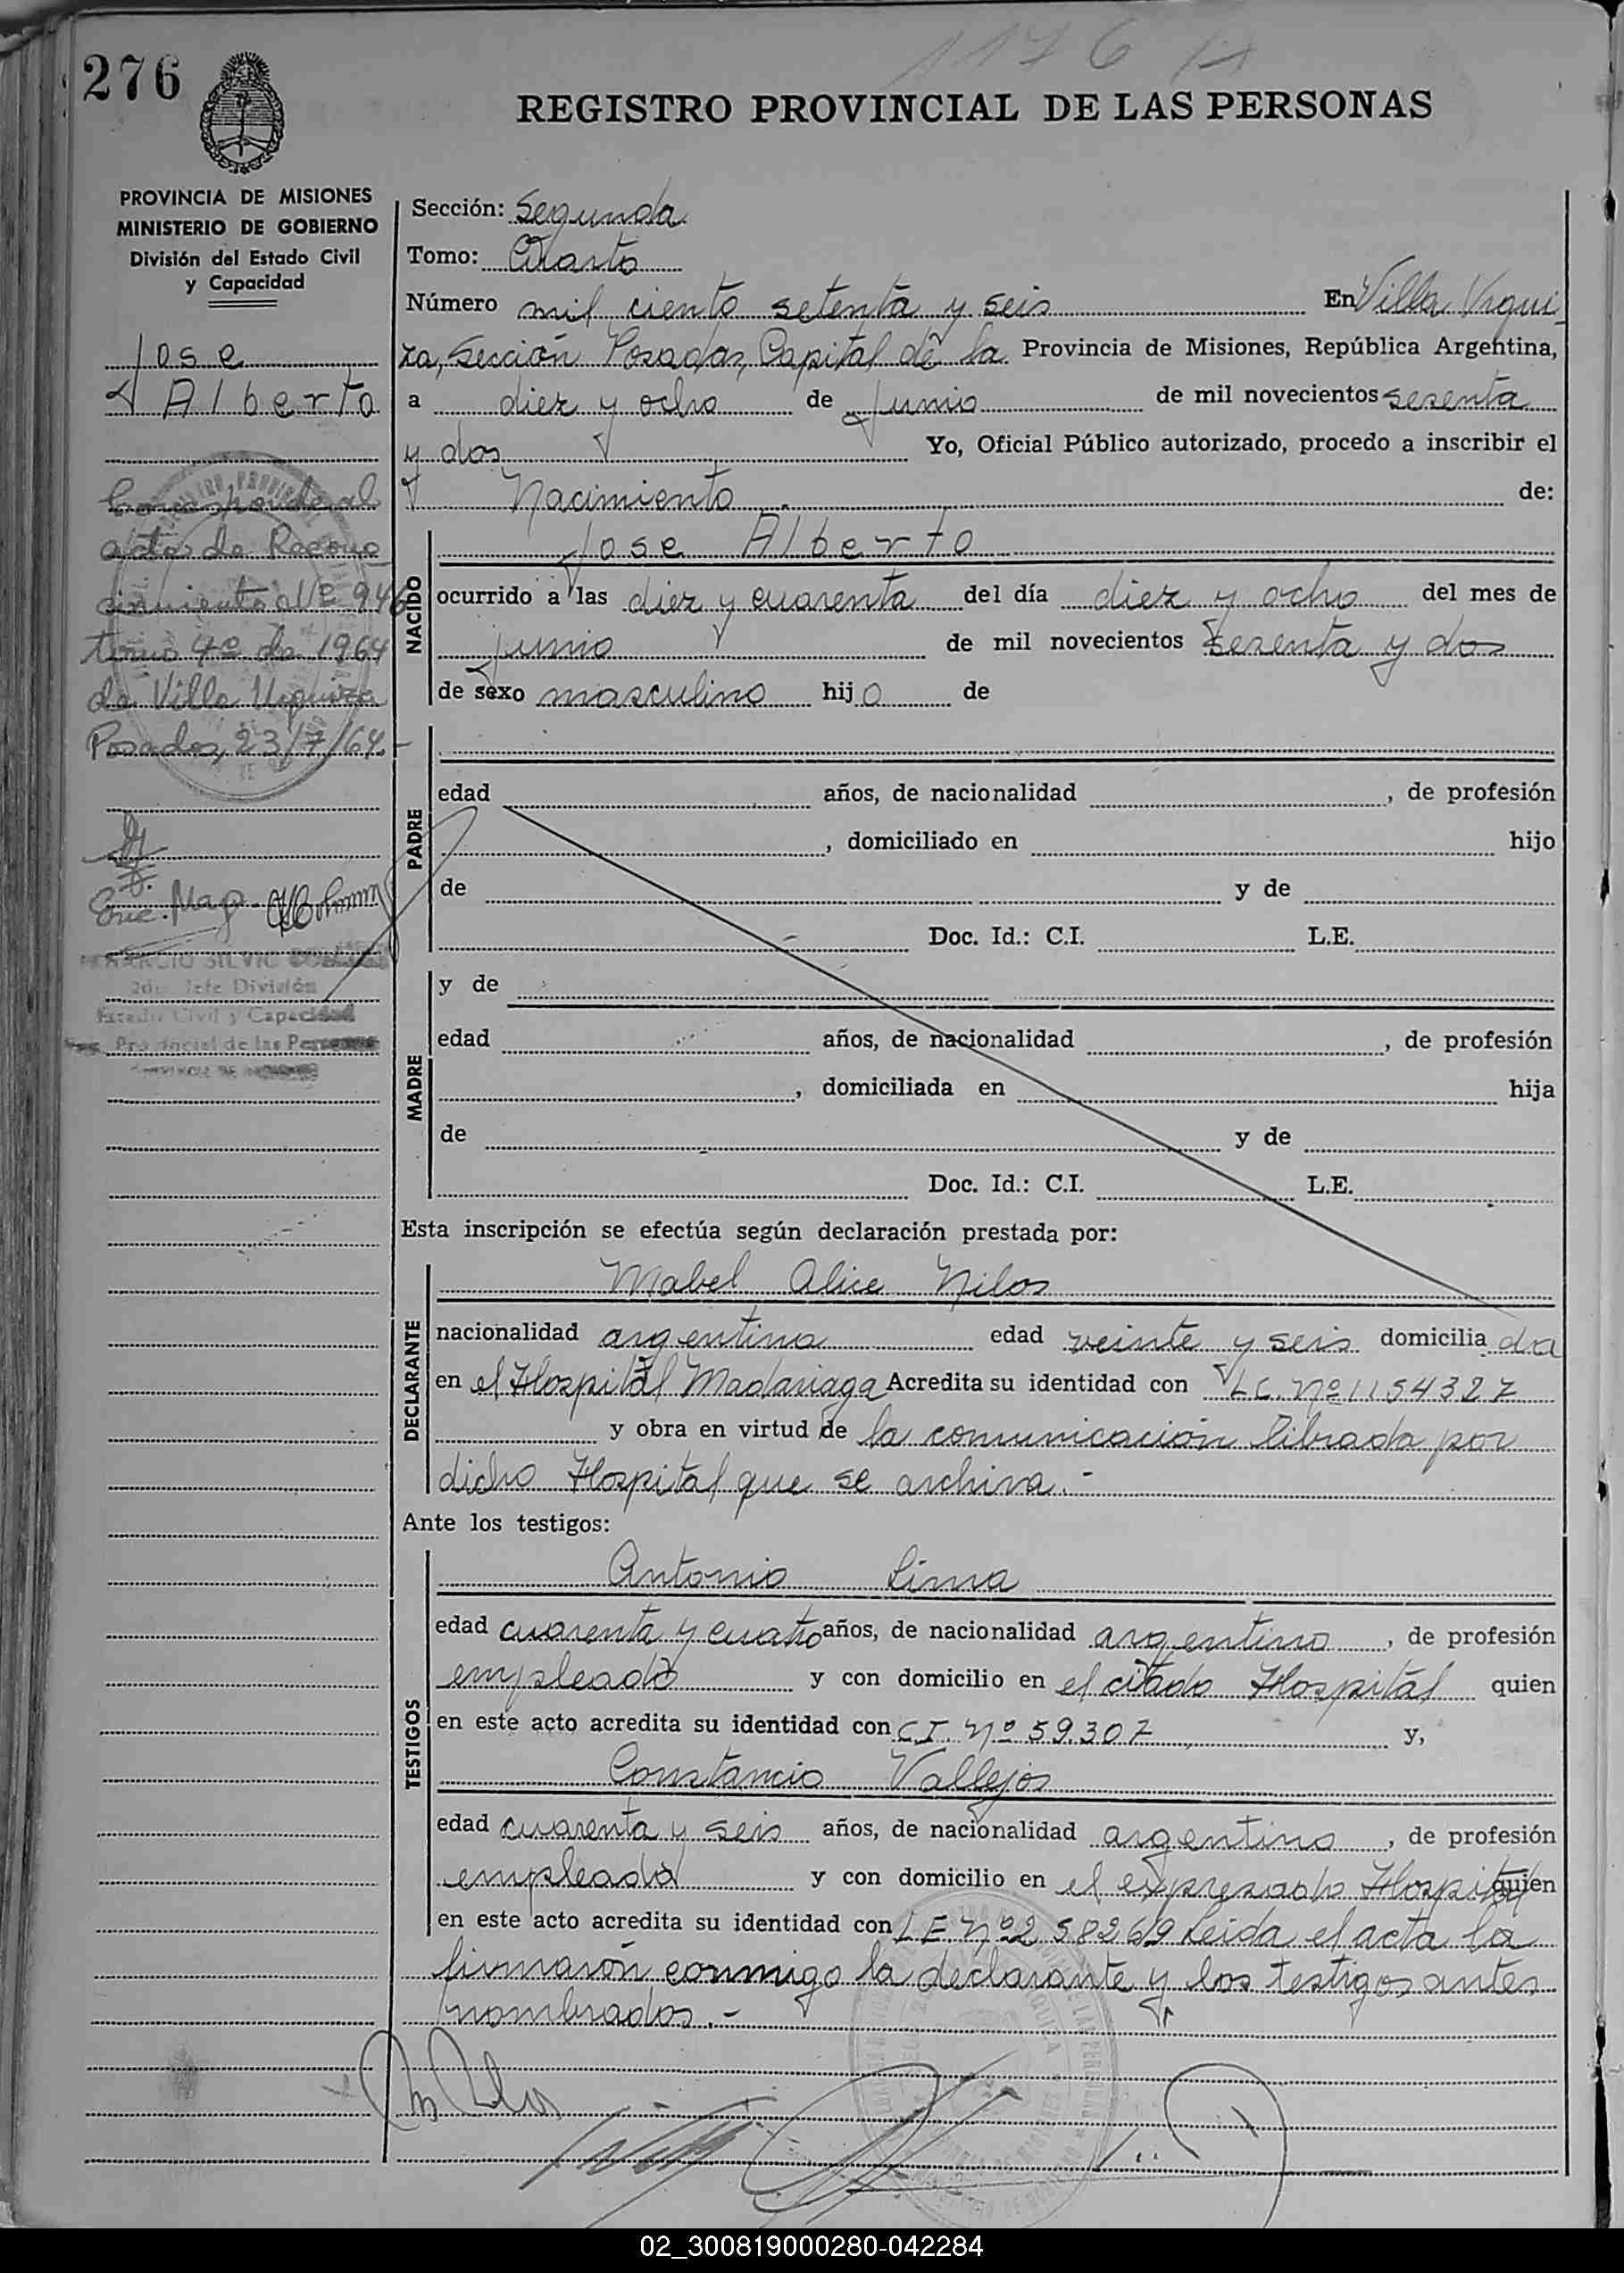 276
1176
REGISTRO PROVINCIAL DE LAS PERSONAS
PROVINCIA DE MISIONES
MINISTERIO DE GOBIERNO
División del Estado Civil
y Capacidad
Jose
Alberto
Corresponde al
acta de Recono
cimiento Nº 946
tomo 4º de 1964
de Villa Urquiza
Posadas, 23/7/64.-
Enc. Mag.
2do. Jefe División
Estado Civil y Capacidad
Provincial de las Personas
Sección: Segunda
Tomo: Cuarto
Número mil ciento setenta y seis En Villa Urqui
za, Sección Posadas, Capital de la Provincia de Misiones, República Argentina,
a diez y ocho de junio de mil novecientos sesenta
y dos Yo, Oficial Público autorizado, procedo a inscribir el
Nacimiento de:
NACIDO
Jose Alberto
ocurrido a las diez y cuarenta del día diez y ocho del mes de
junio de mil novecientos sesenta y dos
de sexo masculino hijo de
PADRE
edad años, de nacionalidad , de profesión
, domiciliado en hijo
de y de
Doc. Id.: C.I. L.E.
MADRE
y de
edad años, de nacionalidad , de profesión
, domiciliada en hija
de y de
Doc. Id.: C.I. L.E.
Esta inscripción se efectúa según declaración prestada por:
DECLARANTE
Mabel Alice Nilos
nacionalidad argentina edad veinte y seis domiciliada
en el Hospital Madariaga Acredita su identidad con L.C. Nº 1154327
y obra en virtud de la comunicación librada por
dicho Hospital que se archiva.-
Ante los testigos:
TESTIGOS
Antonio Lima
edad cuarenta y cuatro años, de nacionalidad argentino, de profesión
empleado y con domicilio en el citado Hospital quien
en este acto acredita su identidad con C.I. Nº 59.307 y,
Constancio Vallejos
edad cuarenta y seis años, de nacionalidad argentino, de profesión
empleado y con domicilio en el expresado Hospital quien
en este acto acredita su identidad con L.E. Nº 2 58269 Leida el acta la
firmarón conmigo la declarante y los testigos antes
nombrados.-
02_300819000280-042284